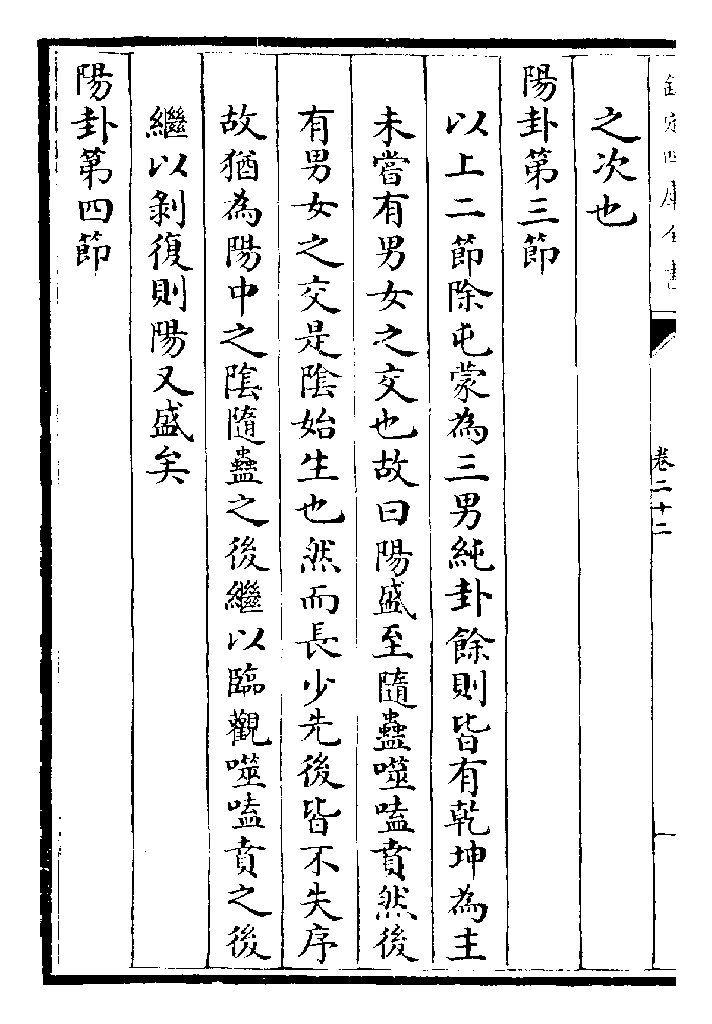 欽定四庫全書
卷二十二
之次也
陽卦第三節
以上二節除屯蒙為三男純卦餘則皆有乾坤為主
未嘗有男女之交也故曰陽盛至隨蠱噬嗑賁然後
有男女之交是陰始生也然而長少先後皆不失序
故猶為陽中之陰隨蠱之後繼以臨觀噬嗑賁之後
繼以剝復則陽又盛矣
陽卦第四節